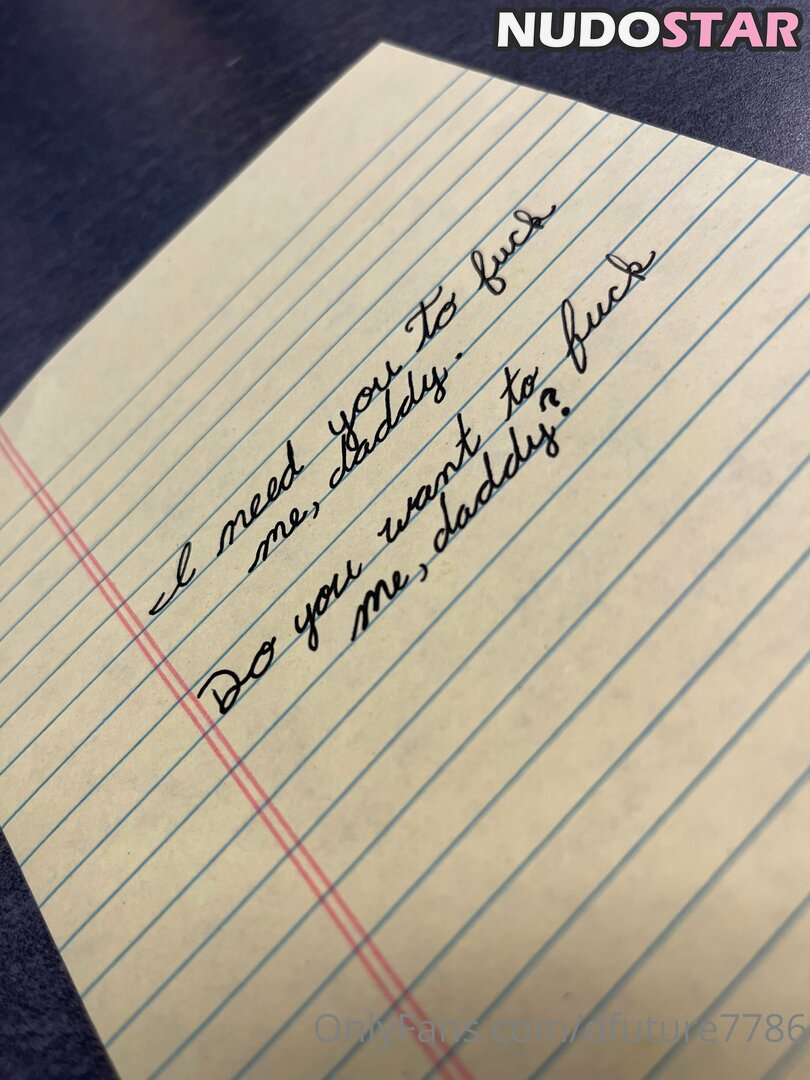 NUDOSTAR
I need you to fuck
me, daddy.
Do you want to fuck
me, daddy?
OnlyFans.com/dfuture7786